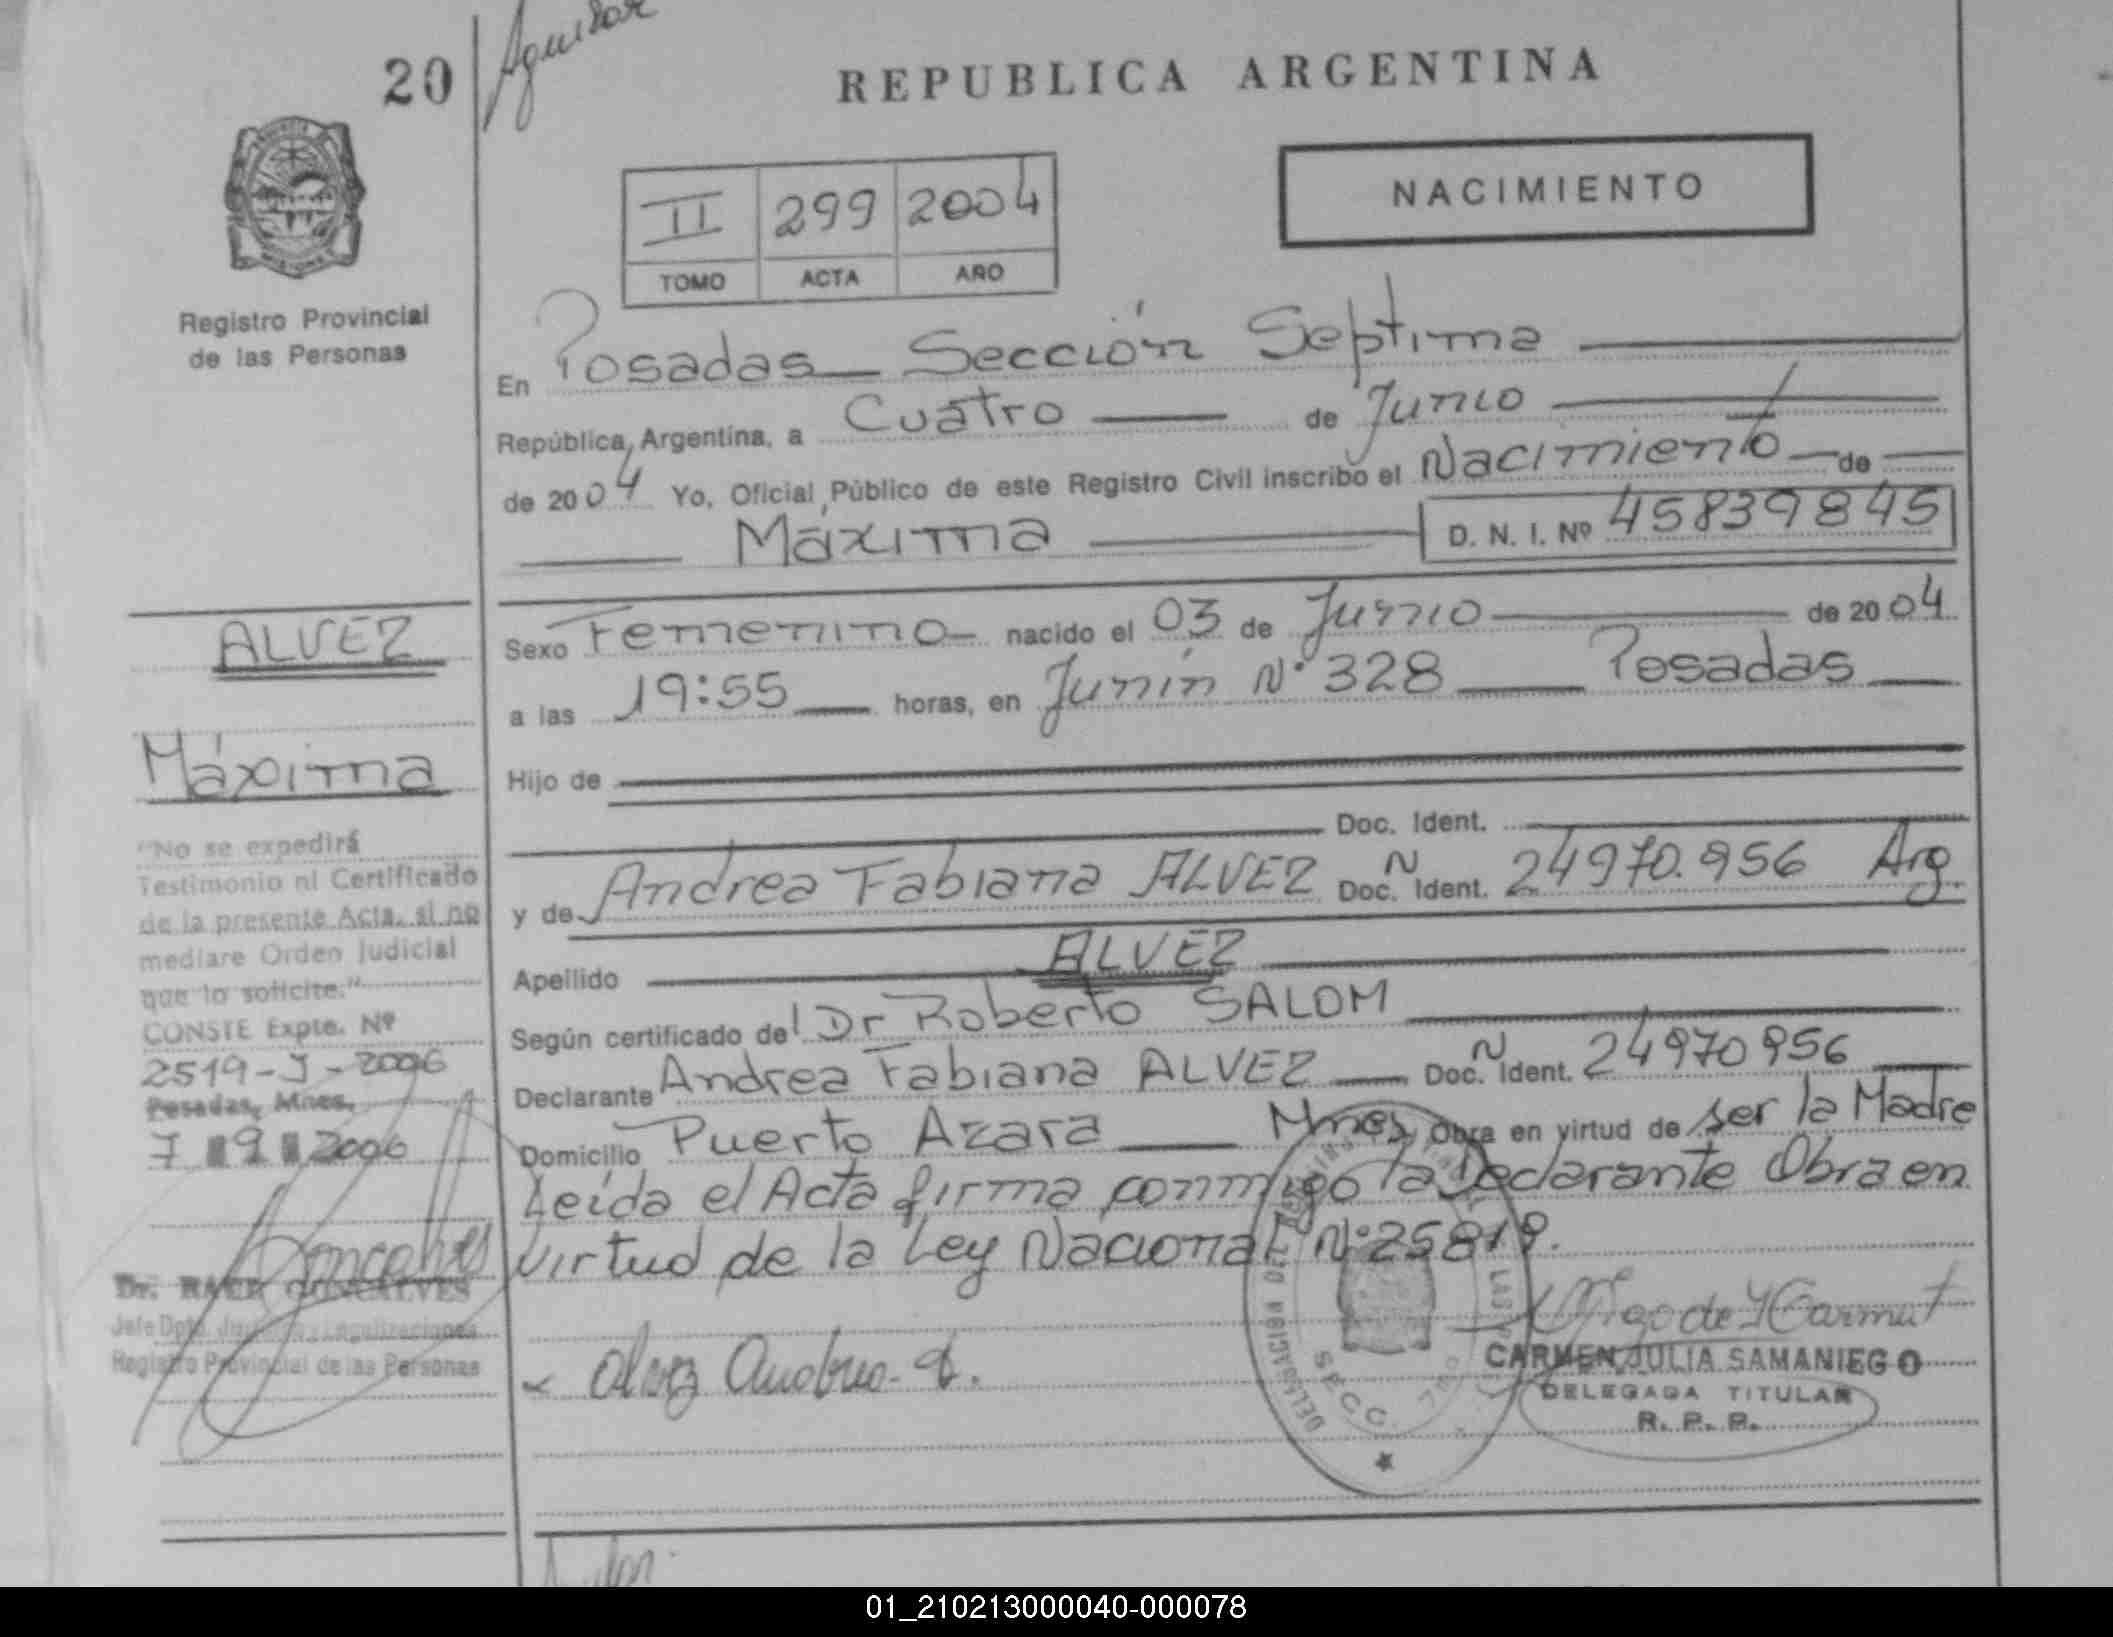 20
Aguilar
REPUBLICA ARGENTINA
II 299 2004
TOMO ACTA AÑO
NACIMIENTO
Registro Provincial
de las Personas
En Posadas Sección Septima
República Argentina, a Cuatro de Junio
de 2004 Yo, Oficial Público de este Registro Civil inscribo el Nacimiento de
Máxima D. N. I. Nº 45839845
ALVEZ
Máxima
Sexo Femenino nacido el 03 de Junio de 2004
a las 19:55 horas, en Junín Nº 328 Posadas
Hijo de
Doc. Ident.
y de Andrea Fabiana ALVEZ Doc. N Ident. 24970.956 Arg
Apellido ALVEZ
Según certificado del Dr Roberto SALOM
Declarante Andrea Fabiana ALVEZ Doc. N Ident. 24970956
Domicilio Puerto Azara Mnes Obra en virtud de ser la Madre
Leída el Acta firma conmigo la Declarante Obra en
virtud de la Ley Nacional Nº 25819.
"No se expedirá
Testimonio ni Certificado
de la presente Acta, si no
mediare Orden Judicial
que lo solicite."
CONSTE Expte. Nº
2519-J-2006
Posadas, Mnes,
7 9 2006
Dr. RAUL GONCALVES
Jefe Dpto. Justicia y Legalizaciones
Registro Provincial de las Personas
Alvez Andrea F.
CARMEN JULIA SAMANIEGO
DELEGADA TITULAR
R. P. P.
SECC. 7MA
01_210213000040-000078